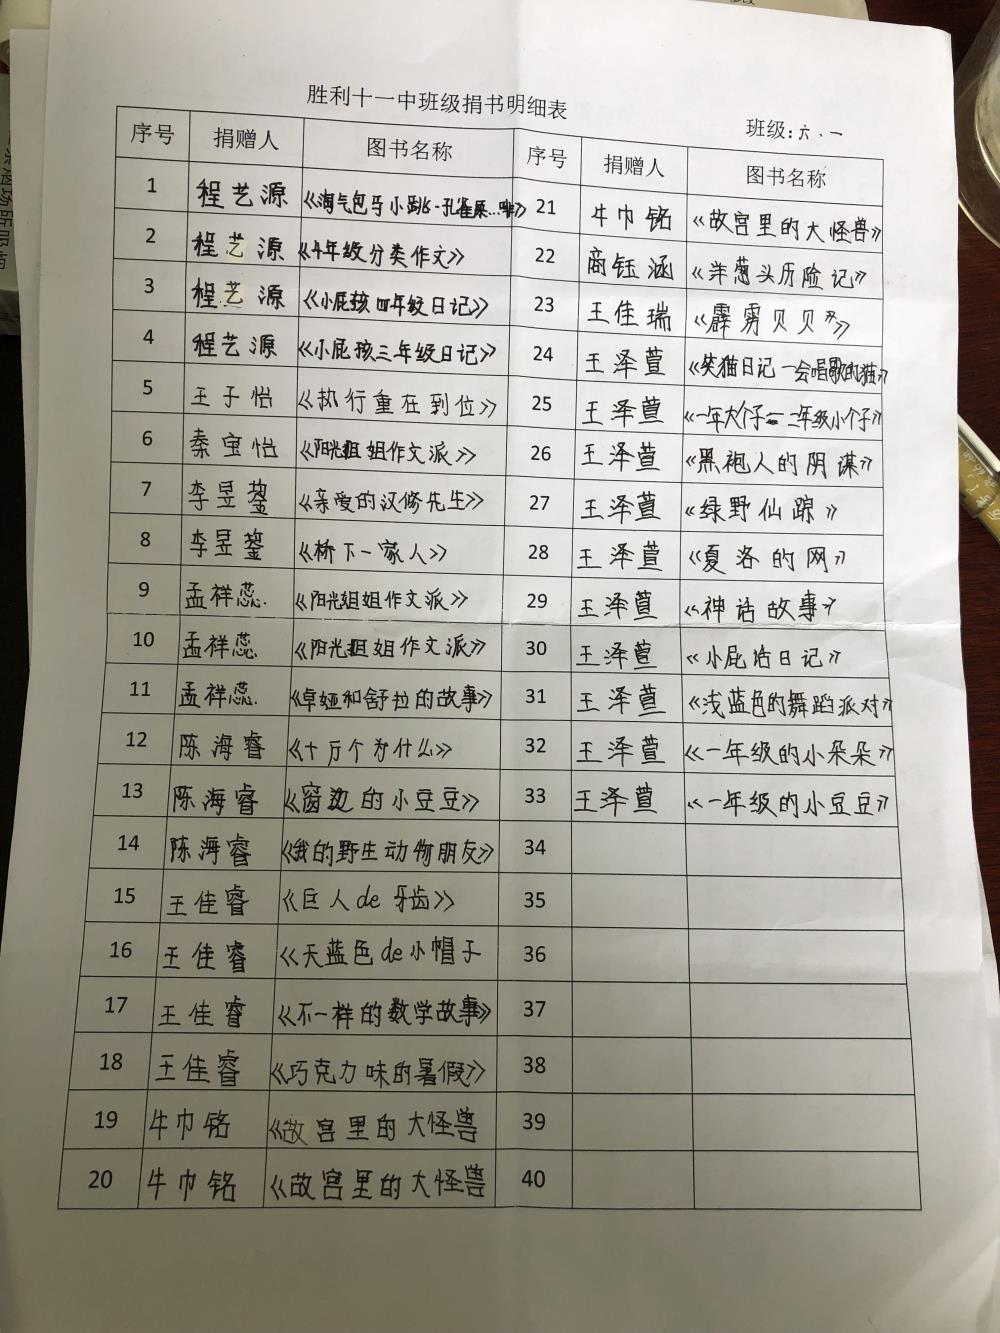 胜利十一中班级捐书明细表
班级：六．一
序号 捐赠人 图书名称 序号 捐赠人 图书名称
1 程艺源 《淘气包马小跳-孔雀屎…啡》 21 牛巾铭 《故宫里的大怪兽》
2 程艺源 《4年级分类作文》 22 商钰涵 《洋葱头历险记》
3 程艺源 《小屁孩四年级日记》 23 王佳瑞 《霹雳贝贝》
4 程艺源 《小屁孩三年级日记》 24 王泽萱 《笑猫日记一会唱歌的猫》
5 王子怡 《执行重在到位》 25 王泽萱 《一年大个子二年级小个子》
6 秦宝怡 《阳光姐姐作文派》 26 王泽萱 《黑袍人的阴谋》
7 李昱鋆 《亲爱的汉修先生》 27 王泽萱 《绿野仙踪》
8 李昱鋆 《桥下一家人》 28 王泽萱 《夏洛的网》
9 孟祥蕊. 《阳光姐姐作文派》 29 王泽萱 《神话故事》
10 孟祥蕊 《阳光姐姐作文派》 30 王泽萱 《小屁话日记》
11 孟祥蕊. 《卓娅和舒拉的故事》 31 王泽萱 《浅蓝色的舞蹈派对》
12 陈海睿 《十万个为什么》 32 王泽萱 《一年级的小朵朵》
13 陈海睿 《窗边的小豆豆》 33 王泽萱 《一年级的小豆豆》
14 陈海睿 《我的野生动物朋友》 34
15 王佳睿 《巨人de牙齿》 35
16 王佳睿 《天蓝色de小帽子 36
17 王佳睿 《不一样的数学故事》 37
18 王佳睿 《巧克力味的暑假》 38
19 牛巾铭 《故宫里的大怪兽 39
20 牛巾铭 《故宫里的大怪兽 40